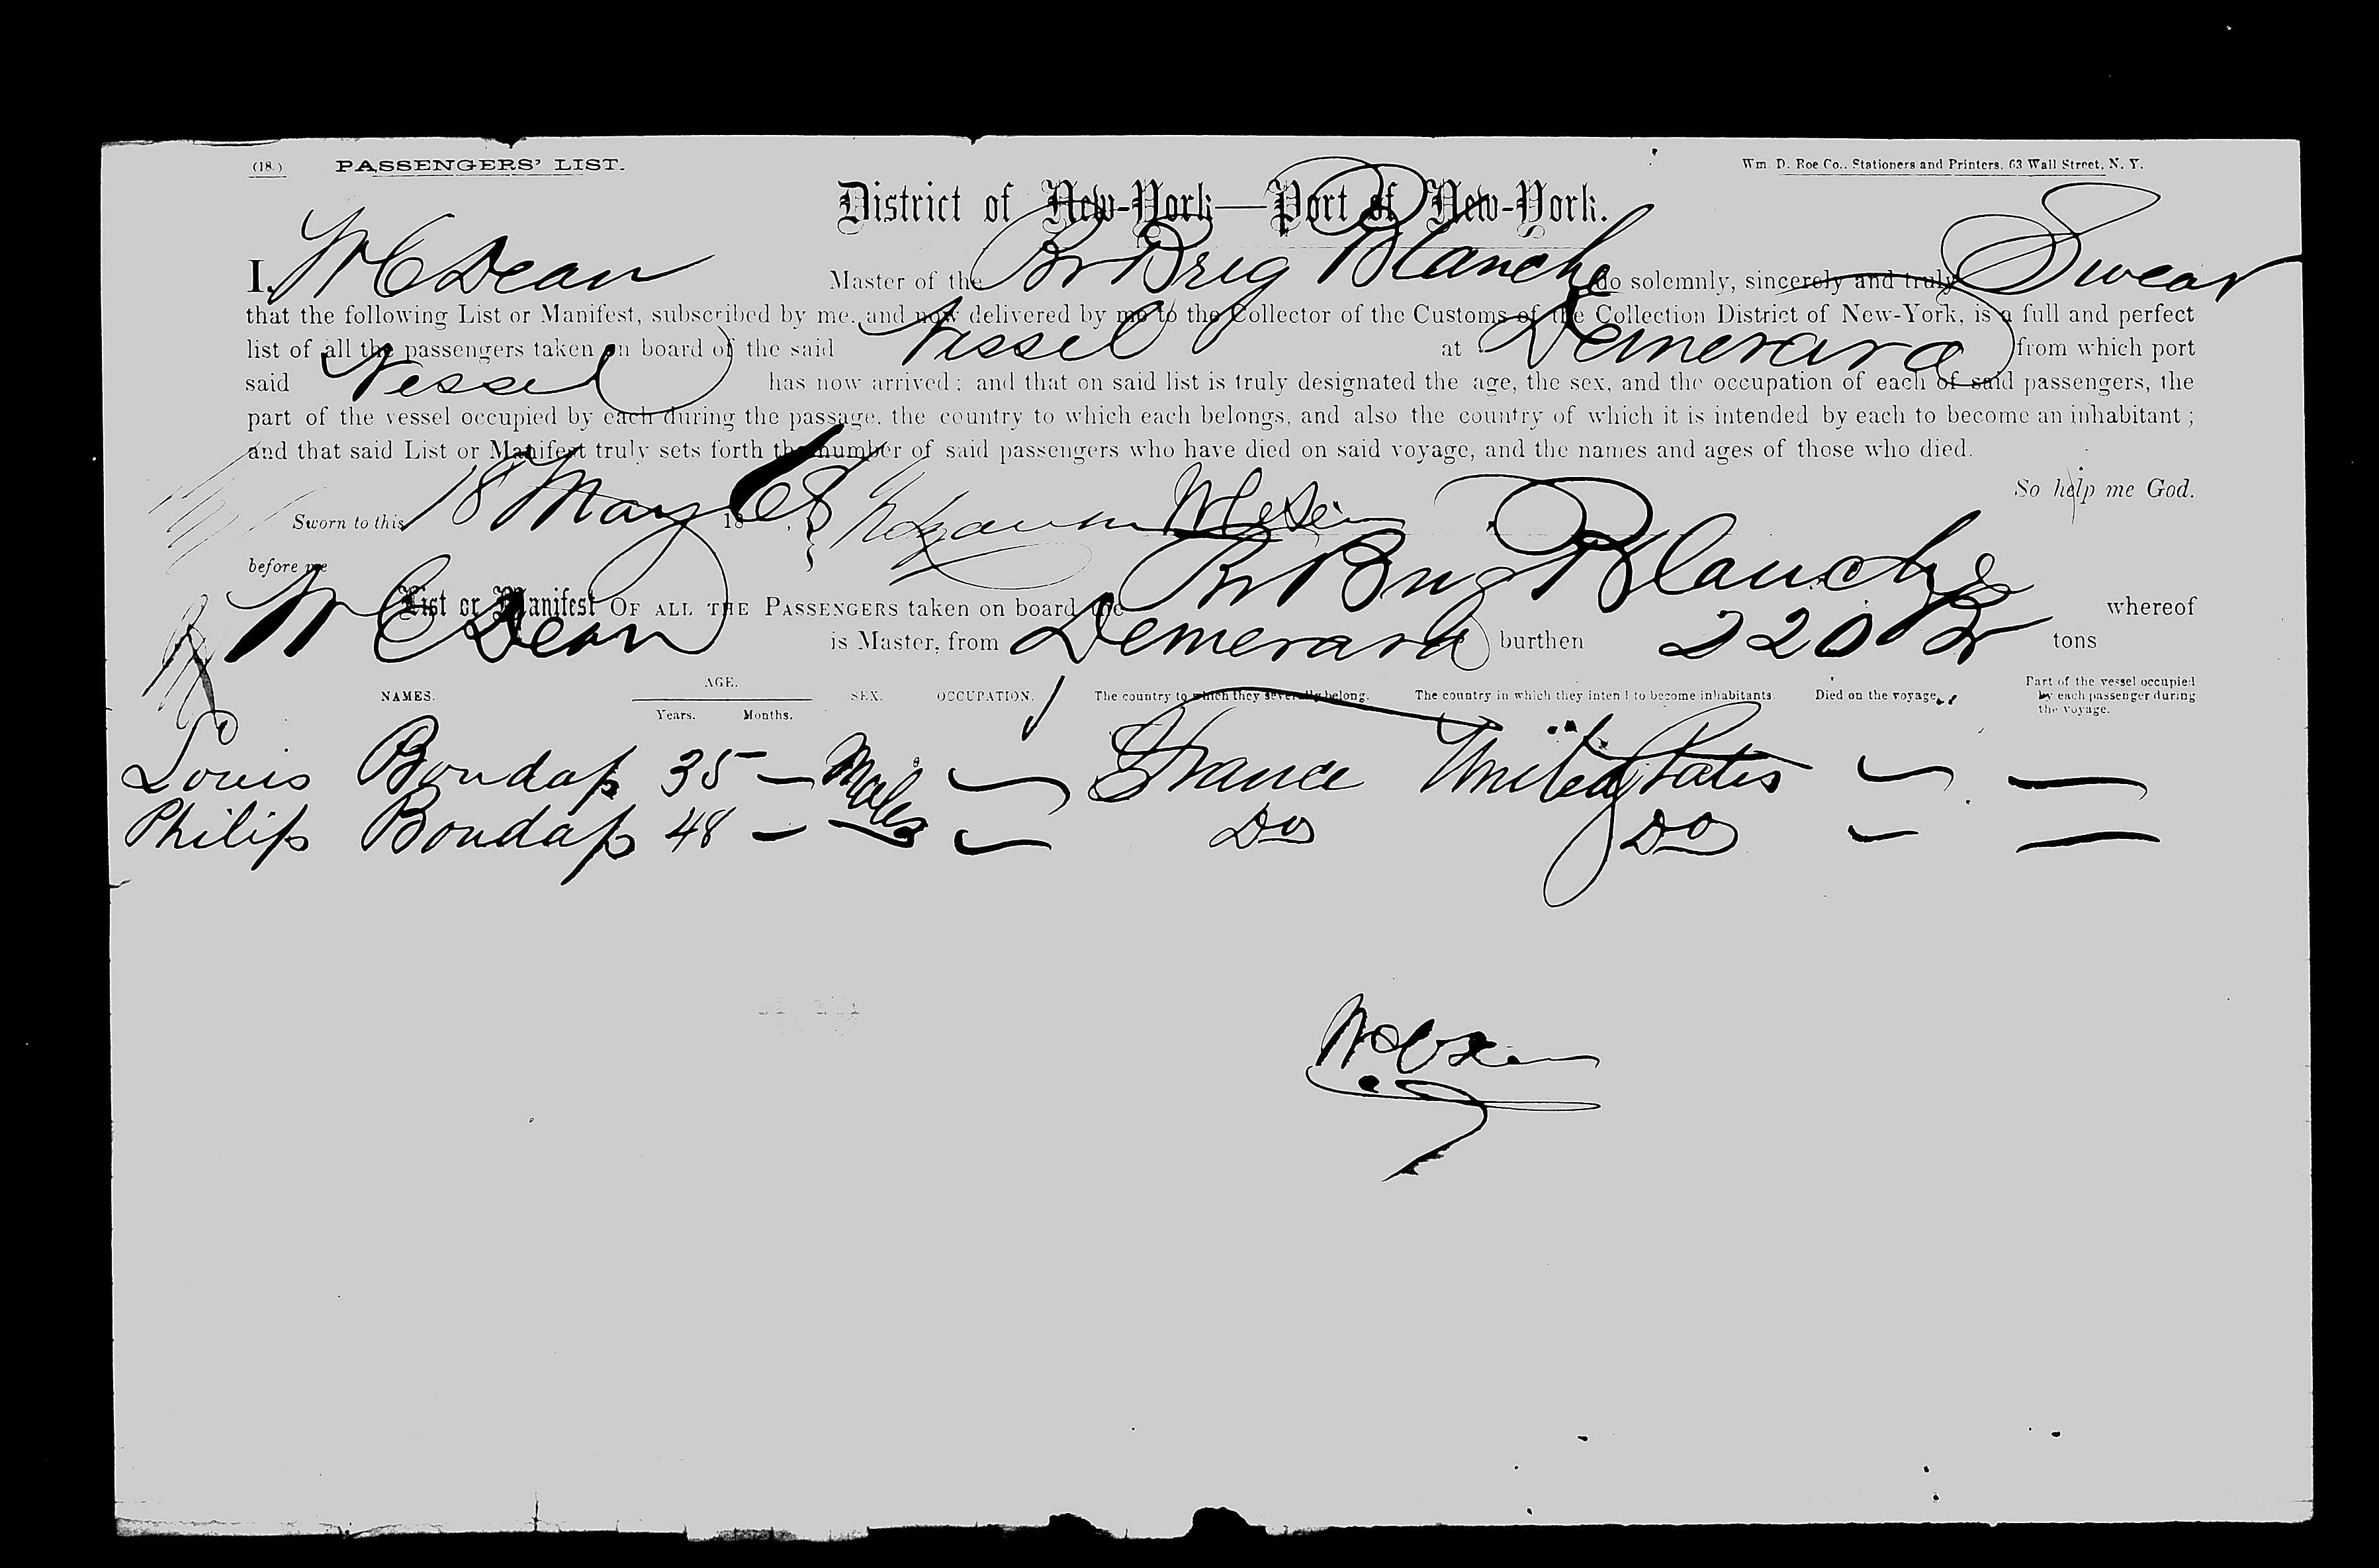 (18.) PASSENGERS' LIST. Wm. D. Roe Co., Stationers and Printers, 63 Wall Street, N. Y.
District of New-York—Port of New-York.
I, W C Dean Master of the Br Brig Blanche do solemnly, sincerely and truly Swear
that the following List or Manifest, subscribed by me, and now delivered by me to the Collector of the Customs of the Collection District of New-York, is a full and perfect
list of all the passengers taken on board of the said Vessel at Demerara from which port
said Vessel has now arrived; and that on said list is truly designated the age, the sex, and the occupation of each of said passengers, the
part of the vessel occupied by each during the passage, the country to which each belongs, and also the country of which it is intended by each to become an inhabitant;
and that said List or Manifest truly sets forth the number of said passengers who have died on said voyage, and the names and ages of those who died.
So help me God.
Sworn to this 18 May 1868
before me
List or Manifest OF ALL THE PASSENGERS taken on board the Br Brig Blanche whereof
W C Dean is Master, from Demerara burthen 220 tons
NAMES. AGE. Years. Months. SEX. OCCUPATION. The country to which they severally belong. The country in which they intend to become inhabitants. Died on the voyage. Part of the vessel occupied by each passenger during the voyage.
Louis Boudap 35 — Males France United States — —
Philip Boudap 48 — Do Do — —